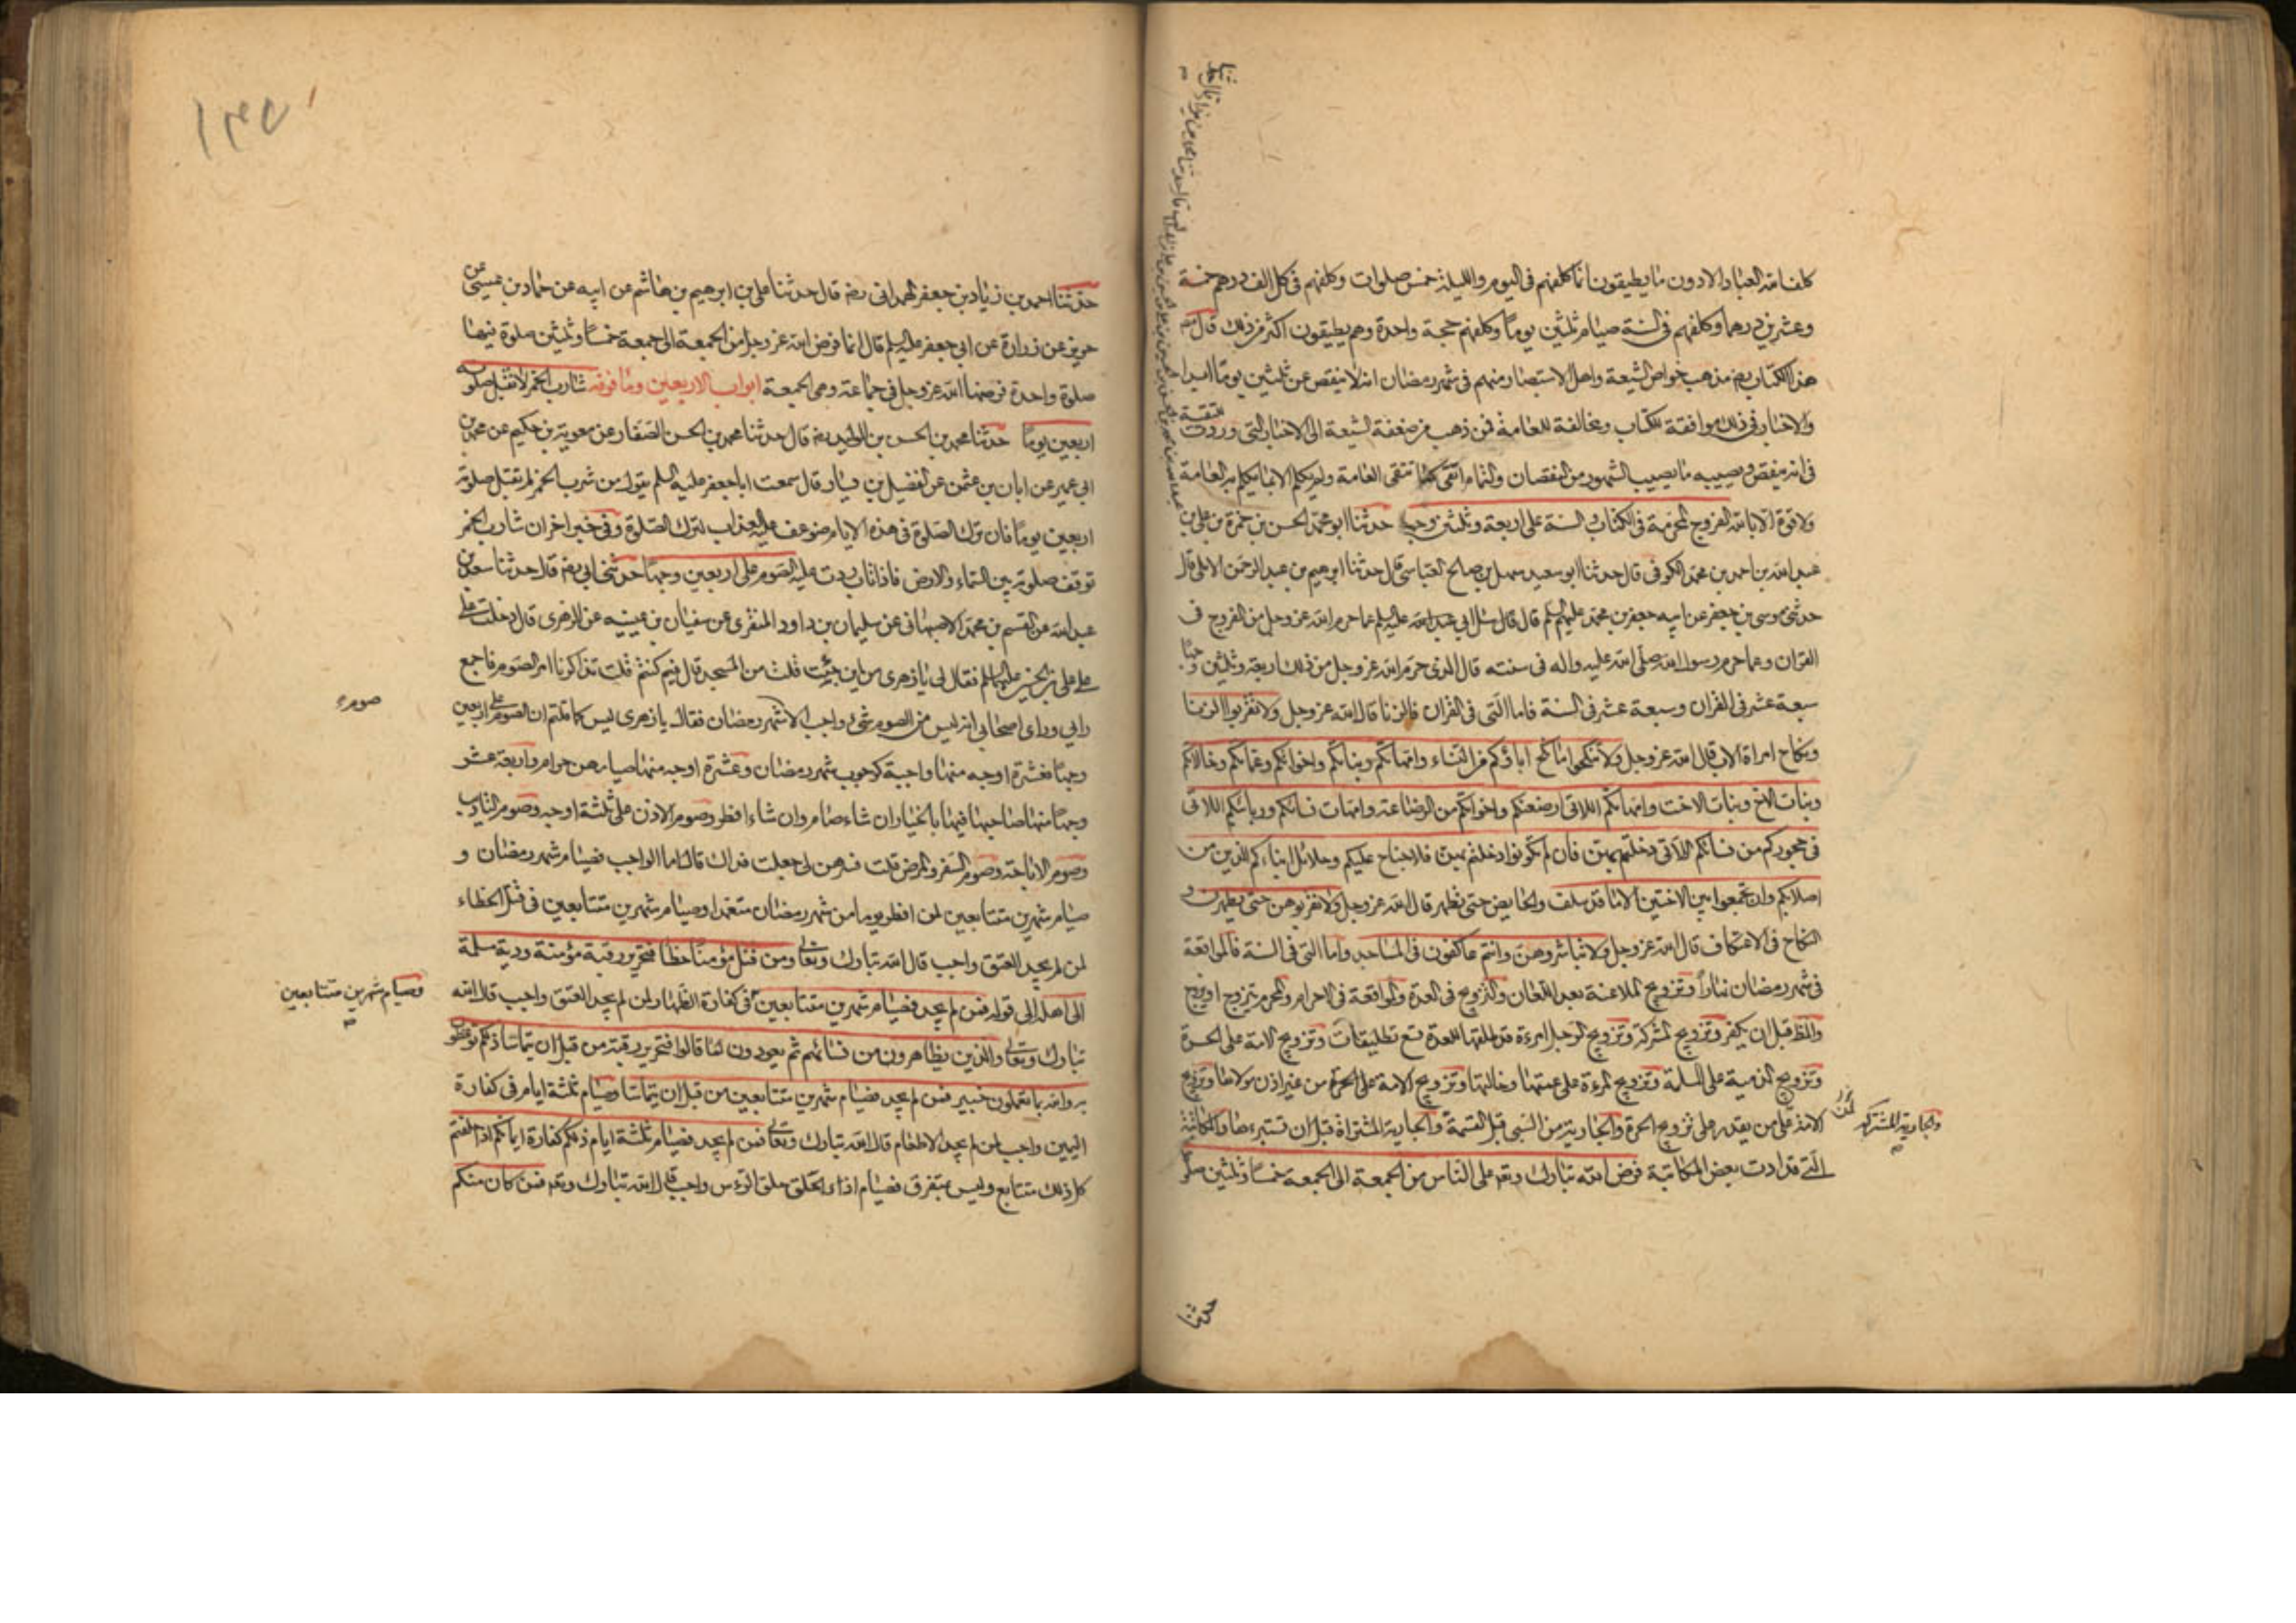 كلف الله العباد الا دون ما يطيقون انما كلفهم في اليوم والليلة خمس صلوات وكلفهم في كل الف درهم خمسة
وعشرين درهما وكلفهم في السنة صيام ثلثين يوماً وكلفهم حجة واحدة وهم يطيقون اكثر من ذلك قال مصنف
هذا الكتاب رضه مذهب خواص الشيعة واهل الاستبصار منهم في شهر رمضان انه لا ينقص عن ثلثين يوماً ابدا
والاخبار في ذلك موافقة للكتاب ومخالفة للعامة فمن ذهب من ضعفة الشيعة الى الاخبار التي وردت للتقية
في انه ينقص ويصيبه ما يصيب الشهور من النقصان والتمام اتقى كما تتقى العامة ولم يكلم الا بما يكلم به العامة
ولا قوة الا بالله الفروج المحرمة في الكتاب والسنة على اربعة وثلثين وجها حدثنا ابو محمد الحسن بن حمزة بن علي بن
عبد الله بن احمد بن محمد الكوفي قال حدثنا ابو سعيد سهل بن صالح العباسي قال حدثنا ابرهيم بن عبد الرحمن الابلي قال
حدثني موسى بن جعفر عن ابيه جعفر بن محمد عليهم السلم قال قال سئل ابي عبد الله عليه السلم عما حرم الله عز وجل من الفروج في
القران وعما حرم رسول الله صلى الله عليه واله في سنته قال الذي حرم الله عز وجل من ذلك اربعة وثلثين وجهاً
سبعة عشر في القران وسبعة عشر في السنة فاما التي في القران فالزنا قال الله عز وجل ولا تقربوا الزنا
ونكاح امراة الاب قال الله عز وجل ولا تنكحوا ما نكح اباؤكم من النساء وامهاتكم وبناتكم واخواتكم وعماتكم وخالاتكم
وبنات الاخ وبنات الاخت وامهاتكم اللاتي ارضعنكم واخواتكم من الرضاعة وامهات نسائكم وربائبكم اللاتي
في حجوركم من نسائكم اللاتي دخلتم بهن فان لم تكونوا دخلتم بهن فلا جناح عليكم وحلائل ابناءكم الذين من
اصلابكم وان تجمعوا بين الاختين الا ما قد سلف والحايض حتى تطهر قال الله عز وجل ولا تقربوهن حتى يطهرن و
النكاح في الاعتكاف قال الله عز وجل ولا تباشروهن وانتم عاكفون في المساجد واما التي في السنة فالمواقعة
في شهر رمضان نهاراً وتزويج الملاعنة بعد اللعان والتزويج في العدة والمواقعة في الاحرام والمحرم يتزوج او يزوج
والمظاهر قبل ان يكفر وتزويج المشركة وتزويج الرجل امرءة قد طلقها للعدة تسع تطليقات وتزويج الامة على الحرة
وتزويج الذمية على المسلمة وتزويج المرءة على عمتها وخالتها وتزويج الامة على الحرة من غير اذن مولاها وتزويج
الامة على من يقدر على تزويج الحرة والجارية من السبي قبل القسمة والجارية المشتراة قبل ان تستبرءها والمكاتبة
والجارية المشتركة
التي قد ادت بعض المكاتبة فرض الله تبارك وتع على الناس من الجمعة الى الجمعة خمساً وثلثين صلوة
حدثنا
١٣٥
حدثنا احمد بن زياد بن جعفر الهمداني رضه قال حدثنا علي بن ابرهيم بن هاشم عن ابيه عن حماد بن عيسى عن
حريز عن زرارة عن ابي جعفر عليه السلم قال انما فرض الله عز وجل من الجمعة الى جمعة خمساً وثلثين صلوة فيها
صلوة واحدة فرضها الله عز وجل في جماعة وهي الجمعة ابواب الاربعين وما فوقه شارب الخمر لا تقبل صلوته
اربعين يوماً حدثنا محمد بن الحسن بن الوليد رضه قال حدثنا محمد بن الحسن الصفار عن معوية بن حكيم عن محمد بن
ابي عمير عن ابان بن عثمن عن الفضيل بن يسار قال سمعت ابا جعفر عليه السلم يقول من شرب الخمر لم تقبل صلوته
اربعين يوماً فان ترك الصلوة في هذه الايام ضوعف عليه العذاب لترك الصلوة وفي خبر اخر ان شارب الخمر
توقف صلوته بين السماء والارض فاذا تاب ردت عليه الصوم على اربعين وجهاً حدثني ابي رضه قال حدثنا سعد بن
عبد الله عن القسم بن محمد الاصبهاني عن سليمان بن داود المنقري عن سفيان بن عيينه عن الزهري قال دخلت على
علي بن الحسين عليهما السلم فقال لي يا زهري من اين جئت قلت من المسجد قال فيم كنتم قلت تذاكرنا امر الصوم فاجمع
رايي وراى اصحابي انه ليس من الصوم شيء واجب الا شهر رمضان فقال يا زهري ليس كما قلتم ان الصوم على اربعين
صوم
وجهاً فعشرة اوجه منها واجبة كوجوب شهر رمضان وعشرة اوجه منها صيامهن حرام واربعة عشر
وجهاً منها صاحبها فيها بالخيار ان شاء صام وان شاء افطر وصوم الاذن على ثلثة اوجه وصوم التاديب
وصوم الاباحة وصوم السفر والمرض قلت فسرهن لي جعلت فداك قال اما الواجب فصيام شهر رمضان و
صيام شهرين متتابعين لمن افطر يوما من شهر رمضان متعمدا وصيام شهرين متتابعين في قتل الخطاء
لمن لم يجد العتق واجب قال الله تبارك وتعالى ومن قتل مؤمناً خطأ فتحرير رقبة مؤمنة ودية مسلمة
الى اهله الى قوله فمن لم يجد فصيام شهرين متتابعين في كفارة الظهار لمن لم يجد العتق واجب قال الله
وصيام شهرين متتابعين
تبارك وتعالى والذين يظاهرون من نسائهم ثم يعودون لما قالوا فتحرير رقبة من قبل ان يتماسا ذلكم توعظون
به والله بما تعملون خبير فمن لم يجد فصيام شهرين متتابعين من قبل ان يتماسا وصيام ثلثة ايام في كفارة
اليمين واجب لمن لم يجد الاطعام قال الله تبارك وتعالى فمن لم يجد فصيام ثلثة ايام ذلك كفارة ايمانكم اذا حلفتم
كل ذلك متتابع وليس بمتفرق فصيام اذاء الحلق حلق الرءس واجب قال الله تبارك وتع فمن كان منكم